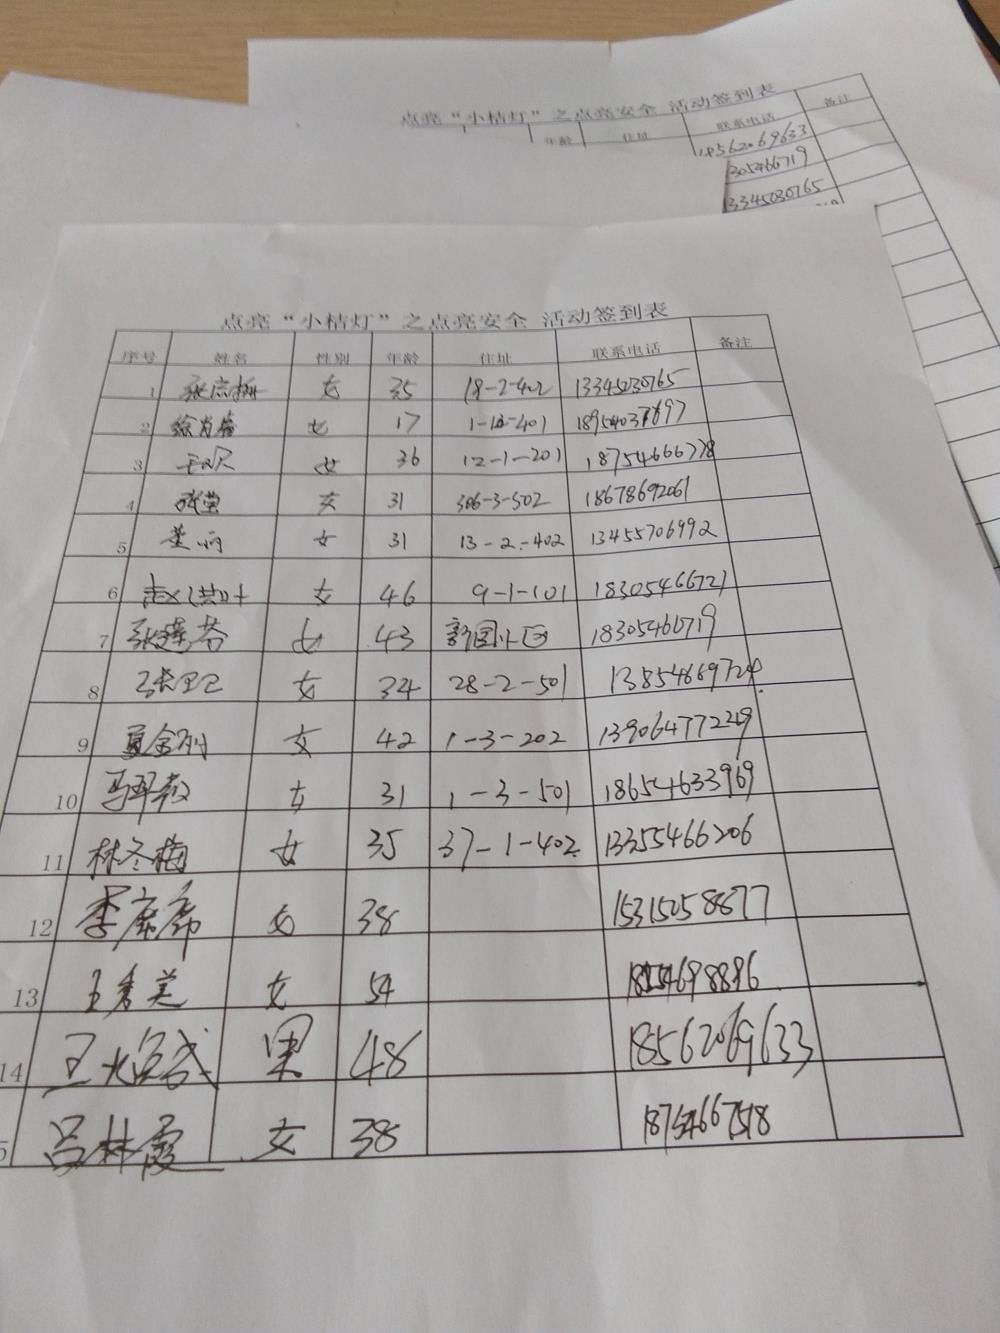 点亮“小桔灯”之点亮安全 活动签到表
年龄 住址 联系电话 备注
18562069633
13345030765
点亮“小桔灯”之点亮安全 活动签到表
序号 姓名 性别 年龄 住址 联系电话 备注
1 女 35 18-2-402 13345030765
2 女 17 18954037697
3 女 36 12-1-201 18754666778
4 张莹 女 31 306-3-502 18678692061
5 董丽 女 31 13-2-402 13455706992
6 女 46 9-1-101 18305466721
7 张莲芬 女 43 18305466719
8 张卫卫 女 34 28-2-501 13854669724
9 女 42 1-3-202 13906477229
10 女 31 1-3-501 18654633969
11 林冬梅 女 35 37-1-402 13355466206
12 李席席 女 38 15315058877
13 王秀美 女 54
14 男 48 18562069633
5 吕林霞 女 38